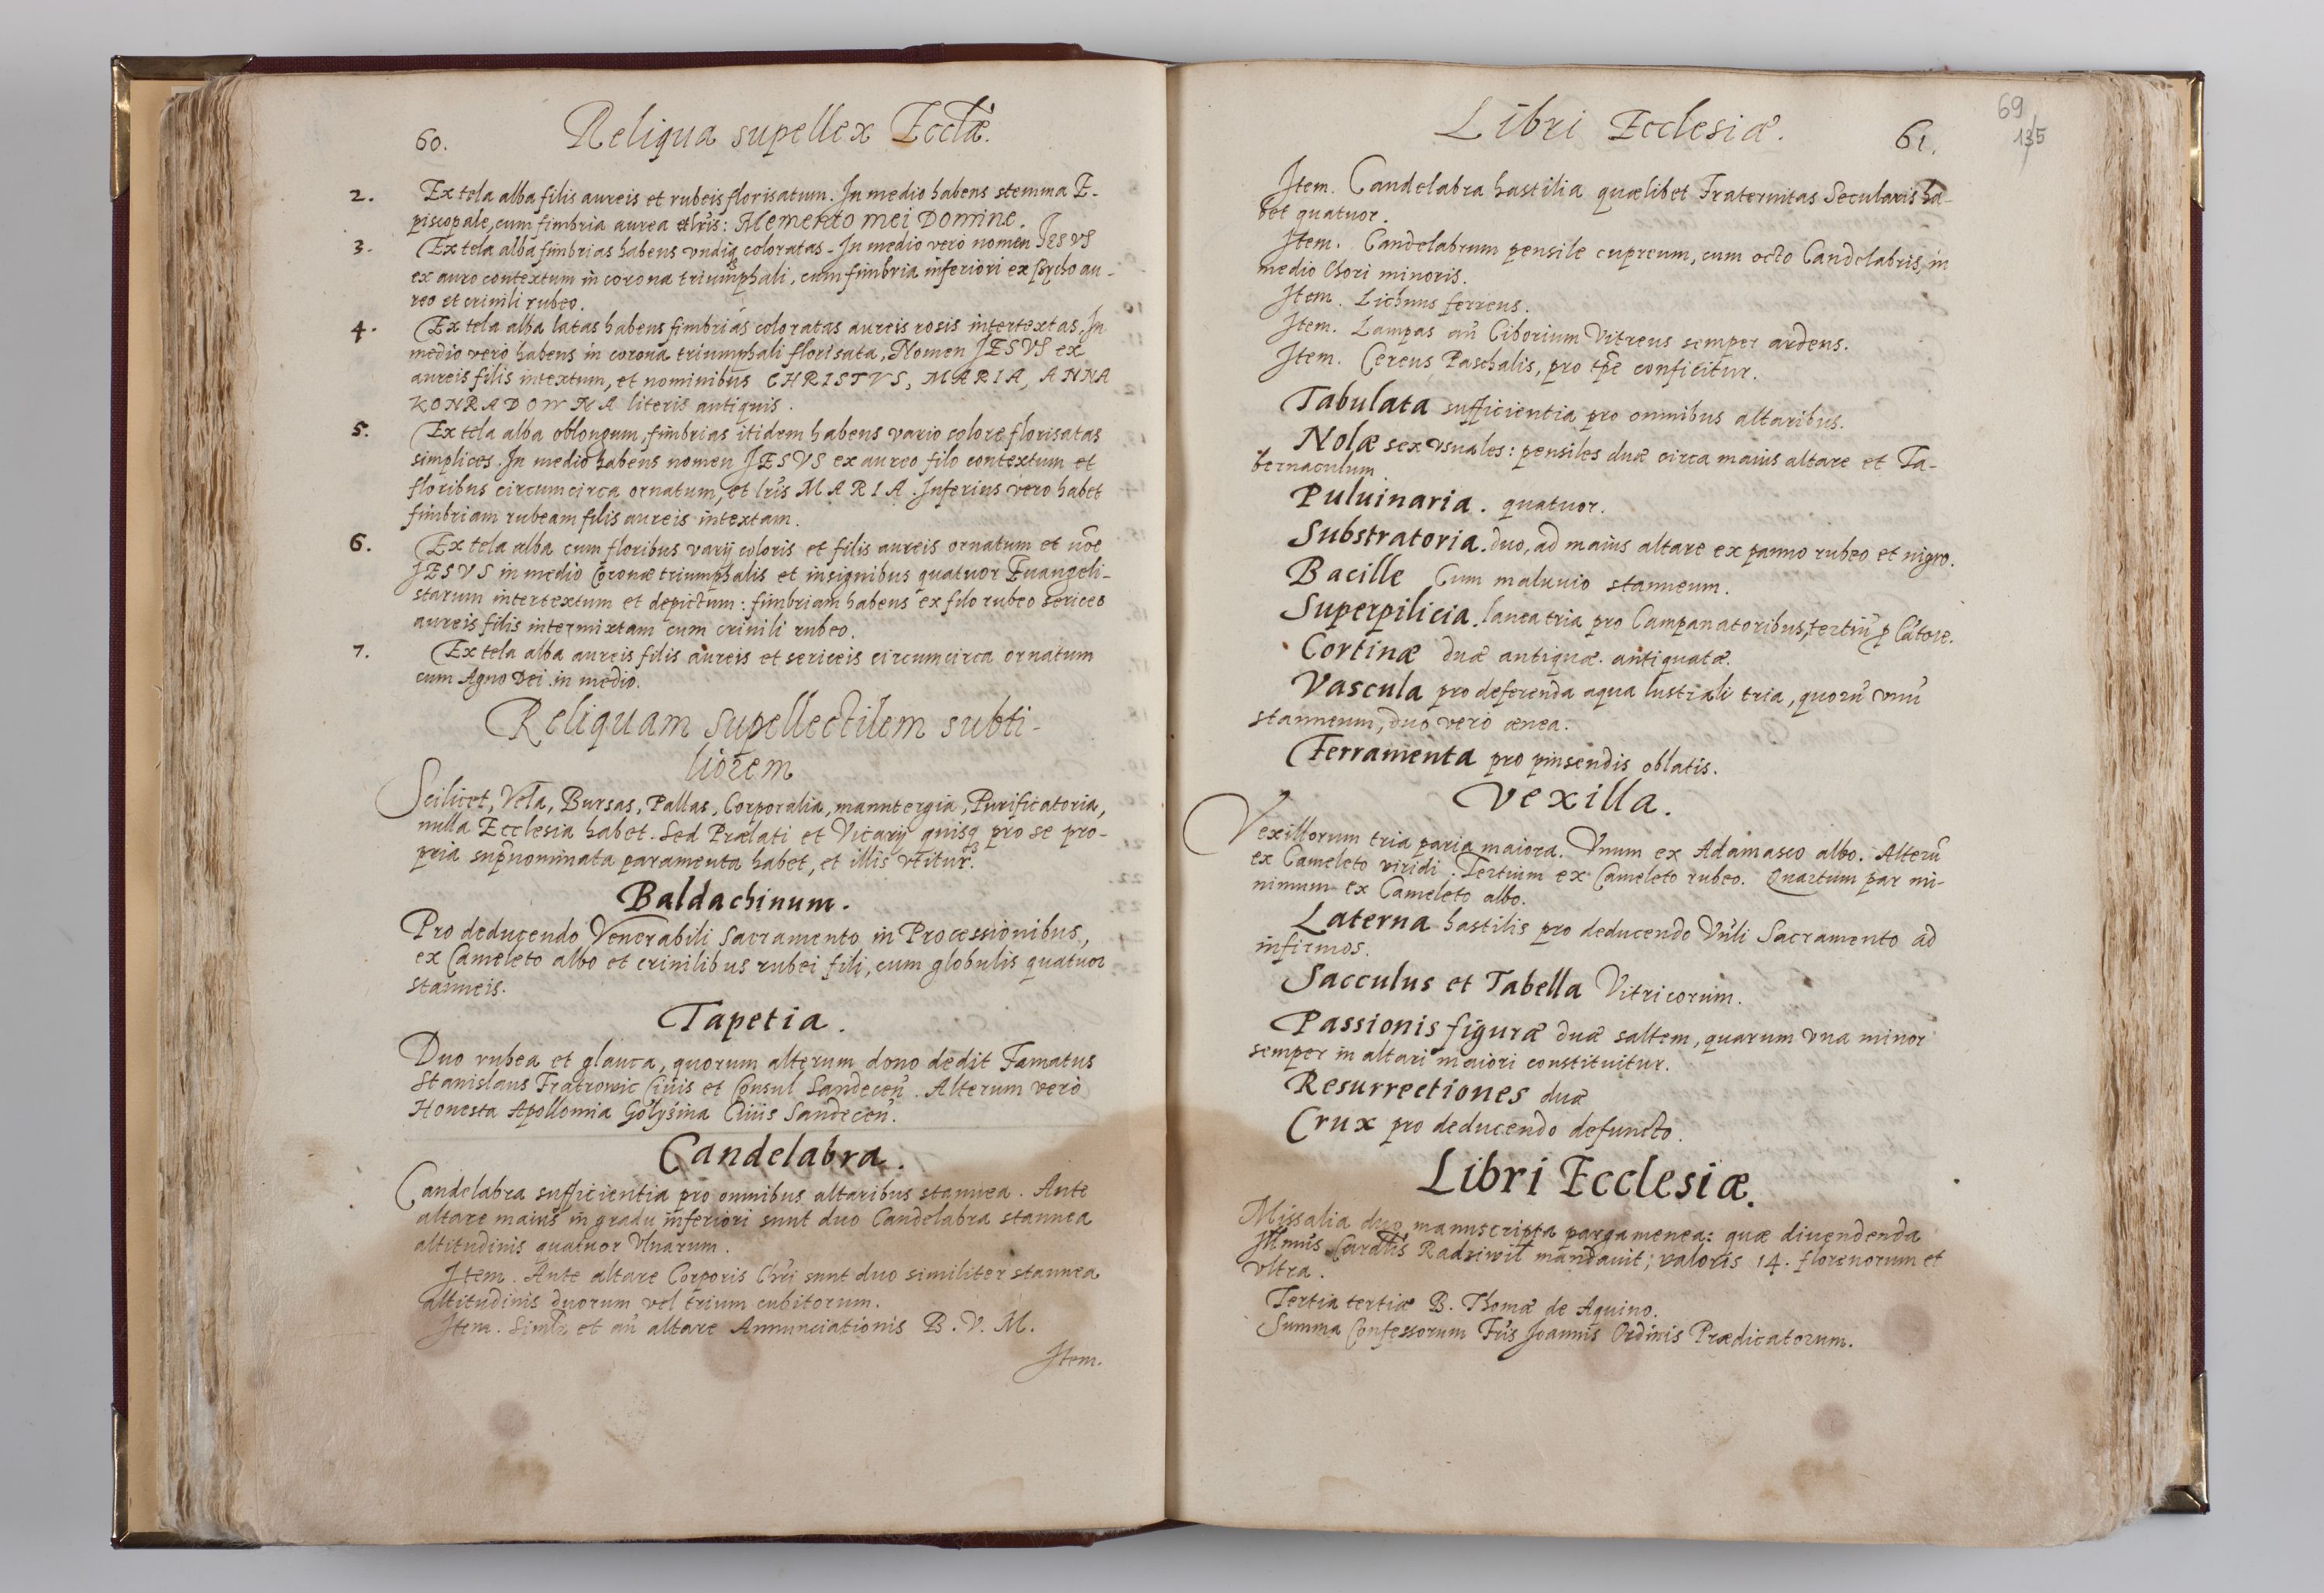 60. Reliqua supellex Eccłæ.
2. Ex tela alba filis aureis et rubeis florisatum. In medio habens stemma E-
piscopale, cum fimbria aurea et lr̃is: Memento mei Domine.
3. Ex tela alba fimbrias habens vndiq coloratas. In medio vero nomen IESVS
ex auro contextum in corona triumphali, cum fimbria inferiori ex au-
reo et crinili rubeo.
4. Ex tela alba latas habens fimbrias coloratas aureis rosis intertextas. In
medio vero habens in corona triumphali florisata, Nomen IESVS ex
aureis filis intextum, et nominibus CHRISTVS, MARIA, ANNA
KONRADOWNA literis antiquis.
5. Ex tela alba oblongum, fimbrias itidem habens vario colore florisatas
simplices. In medio habens nomen IESVS ex aureo filo contextum et
floribus circumcirca ornatum, et lr̃is MARIA. Inferius vero habet
fimbriam rubeam filis aureis intextam.
6. Ex tela alba cum floribus varij coloris et filis aureis ornatum et nõe
IESVS in medio Coronæ triumphalis et insignibus quatuor Euangeli-
starum intertextum et depictum: fimbriam habens ex filo rubeo sericeo
aureis filis intermixtam cum crinili rubeo.
7. Ex tela alba aureis filis aureis et sericeis circumcirca ornatum
cum Agno Dei in medio.
Reliquam supellectilem subti-
liorem
Scilicet, Vela, Bursas, Pallas, Corporalia, manutergia, Purificatoria,
nulla Ecclesia habet. Sed Prælati et Vicarij quisq pro se pro-
pria supr̃nominata paramenta habet, et illis vtitur.
Baldachinum.
Pro deducendo Venerabili Sacramento in Processionibus,
ex Cameleto albo et crinilibus rubei fili, cum globulis quatuor
stanneis.
Tapetia.
Duo rubea et glauca, quorum alterum dono dedit Famatus
Stanislaus Fratrowic Ciuis et Consul Sandeceñ. Alterum verò
Honesta Apollonia Golysina Ciuis Sandeceñ.
Candelabra.
Candelabra sufficientia pro omnibus altaribus stannea. Ante
altare maius in gradu inferiori sunt duo Candelabra stannea
altitudinis quatuor Vlnarum.
Item. Ante altare Corporis Chr̃i sunt duo similiter stannea
altitudinis duorum vel trium cubitorum.
Item. et añ altare Annunciationis B. V. M.
Item.
Libri Ecclesiæ. 61.
69
135
Item. Candelabra hastilia quælibet Fraternitas Secularis ha-
bet quatuor.
Item. Candelabrum pensile cupreum, cum octo Candelabris, in
medio Chori minoris.
Item. Lichnus ferreus.
Item. Lampas añ Ciborium Vitreus semper ardens.
Item. Cereus Paschalis, pro tp̃e conficitur.
Tabulata sufficientia pro omnibus altaribus.
Nolæ sex vsuales: pensiles duæ circa maius altare et Ta-
bernaculum
Puluinaria. quatuor.
Substratoria. duo, ad maius altare ex panno rubeo et nigro.
Bacille Cum maluuio stanneum.
Superpilicia. lanea tria pro Campanatoribus, tertiũ ꝑ Cãtore.
Cortinæ duæ antiquæ. antiquatæ.
Vascula pro deferenda aqua lustrali tria, quorũ vnũ
stanneum, duo verò ænea.
Ferramenta pro pinsendis oblatis.
Vexilla.
Vexillorum tria paria maiora. Vnum ex Adamasco albo. Alterũ
ex Cameleto viridi. Tertium ex Cameleto rubeo. Quartum par mi-
nimum ex Cameleto albo.
Laterna hastilis pro deducendo Vñli Sacramento ad
infirmos.
Sacculus et Tabella Vitricorum.
Passionis figuræ duæ saltem, quarum vna minor
semper in altari maiori constituitur.
Resurrectiones duæ
Crux pro deducendo defuncto.
Libri Ecclesiæ.
Missalia duo manuscripta pargamenea: quæ diuendenda
Illmus Radziwił mandauit; valoris 14. florenorum et
vltra.
Tertia tertiæ B. Thomæ de Aquino.
Summa Confessorum Fr̃is Joannis Ordinis Prædicatorum.